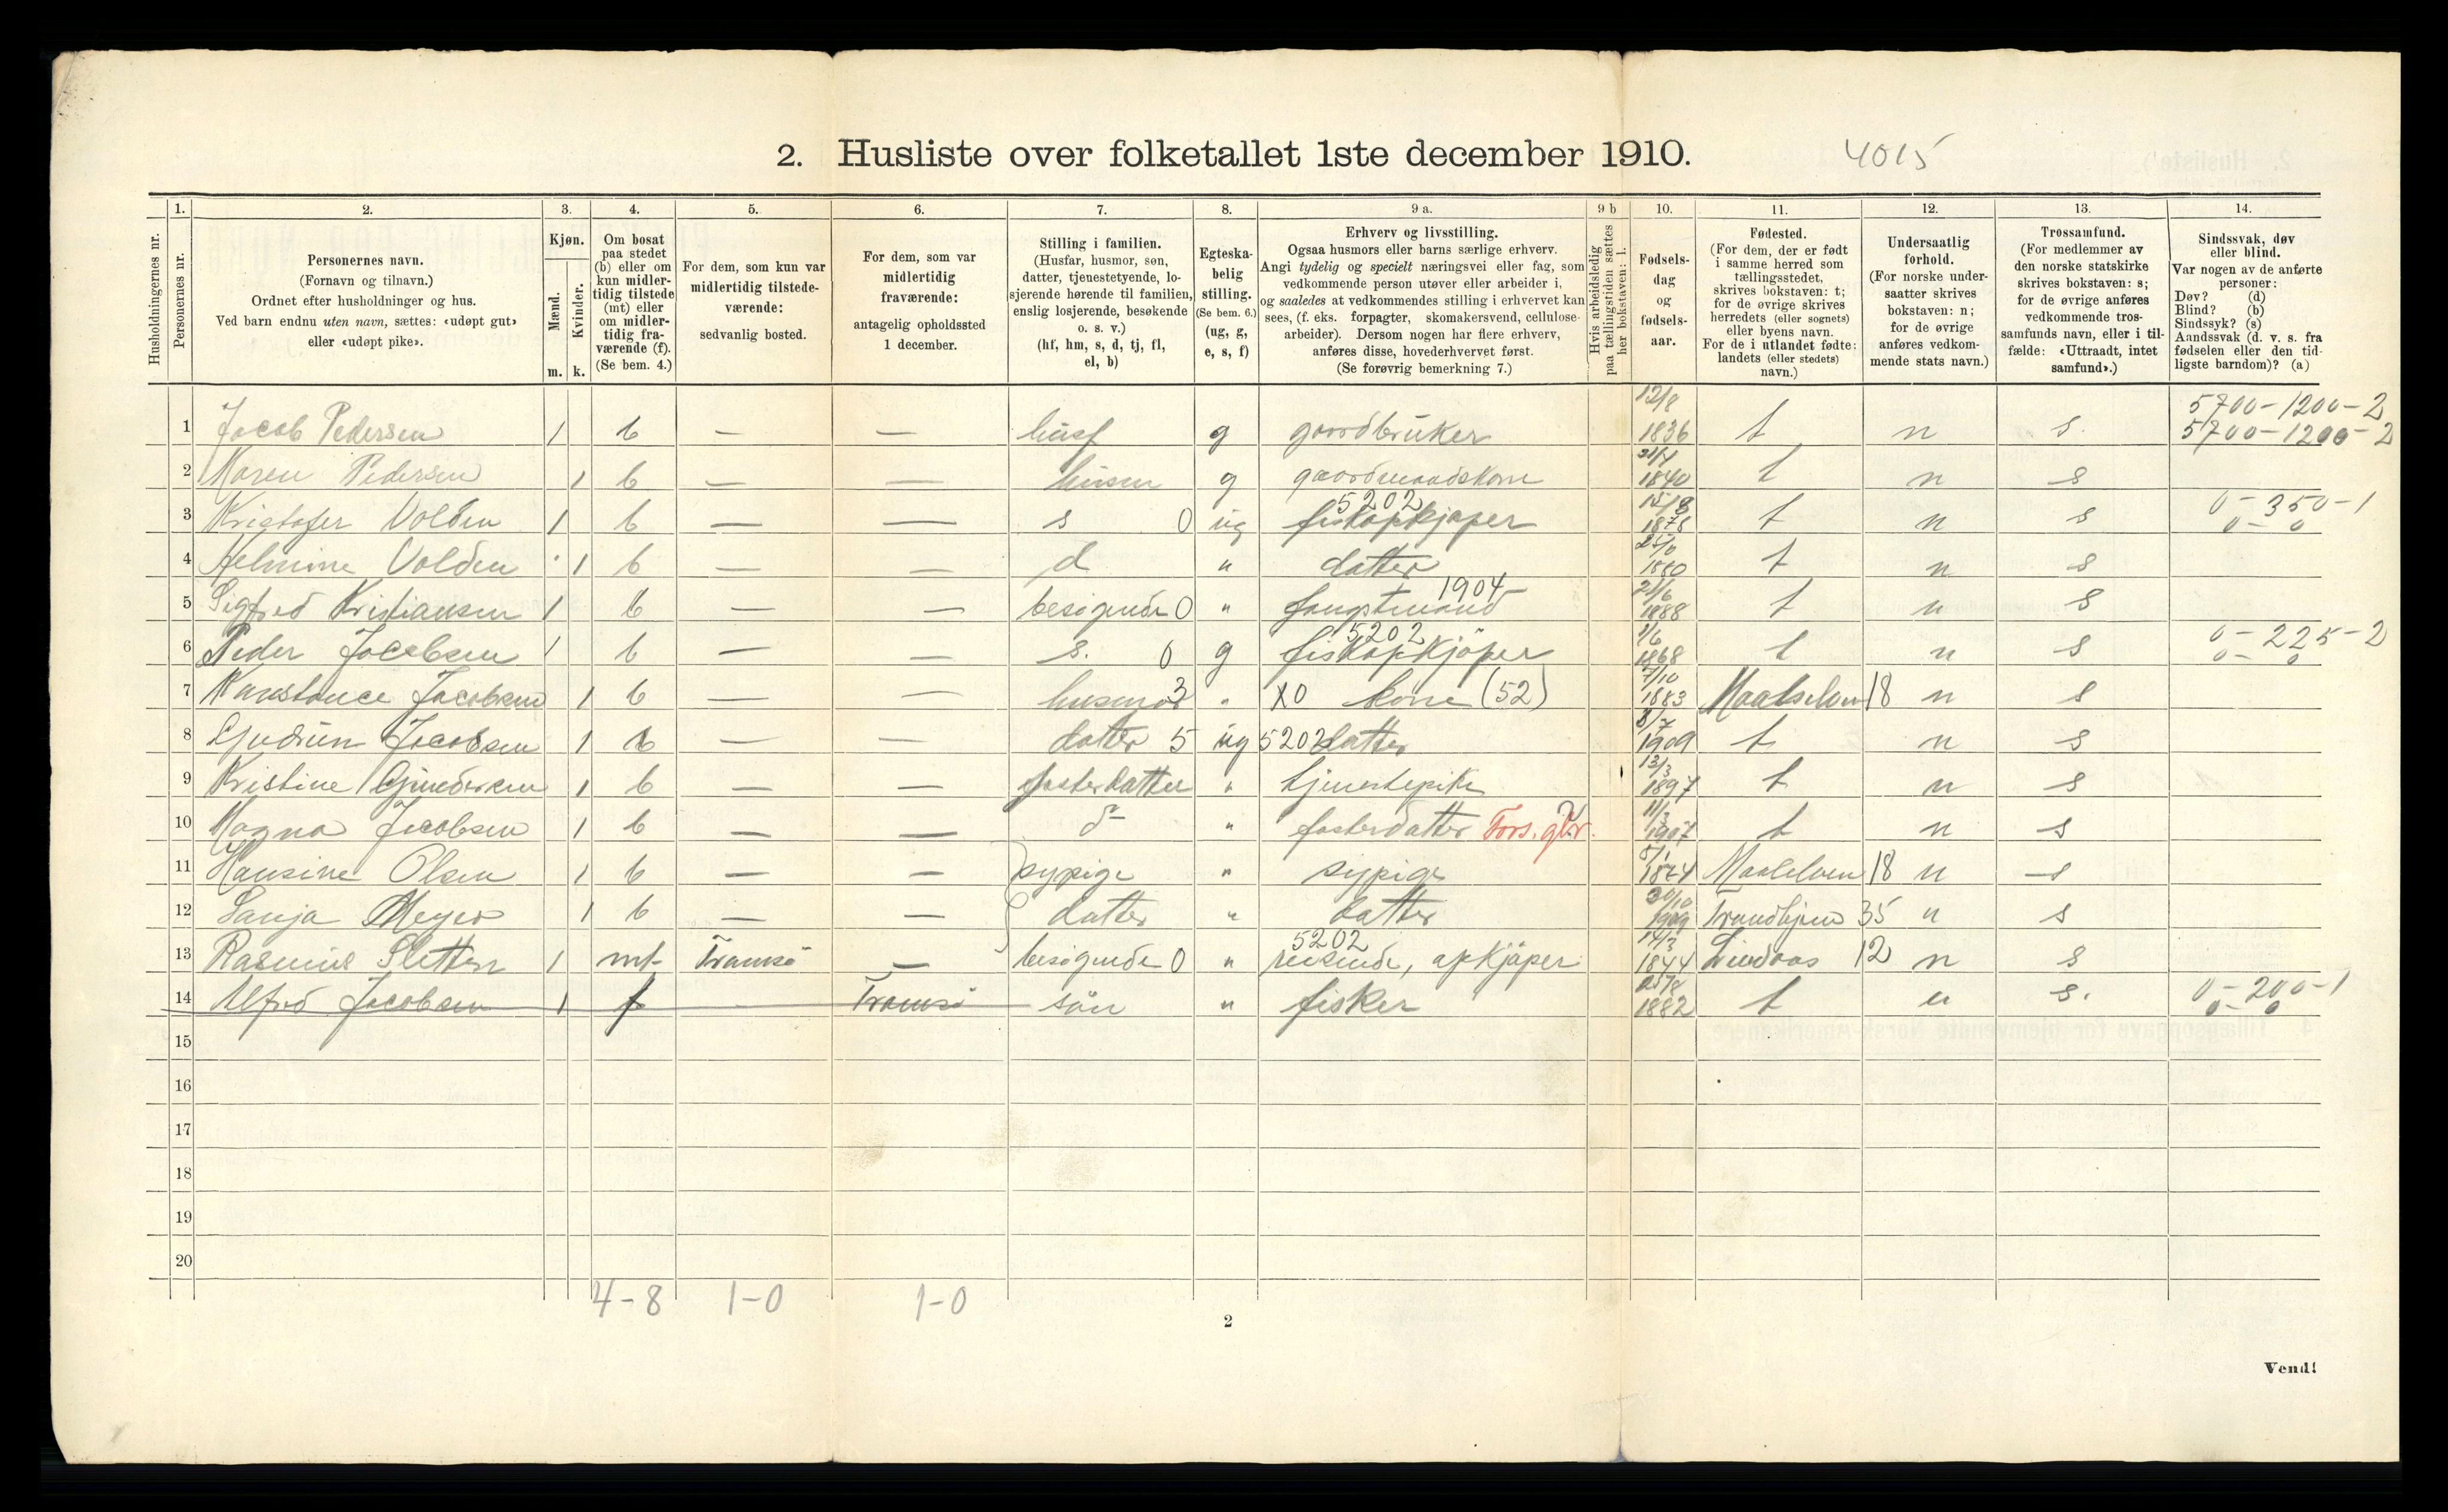 2. Husliste over folketallet 1ste december 1910.
4015
Husholdningernes nr.
1. Personernes nr.
2. Personernes navn.
(Fornavn og tilnavn.)
Ordnet efter husholdninger og hus.
Ved barn endnu uten navn, sættes: «udøpt gut»
eller «udøpt pike».
3. Kjøn.
Mænd. m.
Kvinder. k.
4. Om bosat
paa stedet
(b) eller om
kun midler-
tidig tilstede
(mt) eller
om midler-
tidig fra-
værende (f).
(Se bem. 4.)
5. For dem, som kun var
midlertidig tilstede-
værende:
sedvanlig bosted.
6. For dem, som var
midlertidig
fraværende:
antagelig opholdssted
1 december.
7. Stilling i familien.
(Husfar, husmor, søn,
datter, tjenestetyende, lo-
sjerende hørende til familien,
enslig losjerende, besøkende
o. s. v.)
(hf, hm, s, d, tj, fl,
el, b)
8. Egteska-
belig
stilling.
(Se bem. 6.)
(ug, g,
e, s, f)
9 a. Erhverv og livsstilling.
Ogsaa husmors eller barns særlige erhverv.
Angi tydelig og specielt næringsvei eller fag, som
vedkommende person utøver eller arbeider i,
og saaledes at vedkommendes stilling i erhvervet kan
sees, (f. eks. forpagter, skomakersvend, cellulose-
arbeider). Dersom nogen har flere erhverv,
anføres disse, hovederhvervet først.
(Se forøvrig bemerkning 7.)
9 b Hvis arbeidsledig
paa tællingstiden sættes
her bokstaven: l.
10. Fødsels-
dag
og
fødsels-
aar.
11. Fødested.
(For dem, der er født
i samme herred som
tællingsstedet,
skrives bokstaven: t;
for de øvrige skrives
herredets (eller sognets)
eller byens navn.
For de i utlandet fødte:
landets (eller stedets)
navn.)
12. Undersaatlig
forhold.
(For norske under-
saatter skrives
bokstaven: n;
for de øvrige
anføres vedkom-
mende stats navn.)
13. Trossamfund.
(For medlemmer av
den norske statskirke
skrives bokstaven: s;
for de øvrige anføres
vedkommende tros-
samfunds navn, eller i til-
fælde: «Uttraadt, intet
samfund».)
14. Sindssvak, døv
eller blind.
Var nogen av de anførte
personer:
Døv? (d)
Blind? (b)
Sindssyk? (s)
Aandssvak (d. v. s. fra
fødselen eller den tid-
ligste barndom)? (a)
5700-1200-2
1 Jacob Pedersen 1 b — — husf g gaardbruker 12/8 1836 t n s. 5700-1200-2
2 Maren Pedersen 1 b — — husm g gaardmandskone 1840 t n s
3 Kristofer Volden 1 b — — s 0 ug 5202 fiskopkjøper 1878 t n s 0-350-1
0-0
4 Helmine Volden 1 b — — d " datter 1880 t n s
5 Sigfred Kristiansen 1 b — — besøgende 0 " 1904 fangstmand 21/6 1888 t n s
6 Peder Jacobsen 1 b — — s. 0 g 5202 fiskopkjøper 1/6 1868 t n s 0-225-2
0-0
7 Konstance Jacobsen 1 b — — husmor 3 " X0 kone (52) 7/10 1883 Maalselven 18 n s
8 Gudrun Jacobsen 1 b — — datter 5 ug 5202 datter 8/7 1909 t n s
9 Kristine 1 b — — fosterdatter " tjenestepike 13/3 1897 t n s
10 Magna Jacobsen 1 b — — d° " fosterdatter Fors. gbr. 11/3 1907 t n s
11 Hansine Olsen 1 b — — sypige " sypige 8/1 Maalselven 18 n s
12 Sanja Meyer 1 b — — datter " datter 30/10 1909 Trondhjem 35 n s
13 Rasmus Sletten 1 mt Tromsö — besøgende 0 " 5202 reisende, opkjøper 14/3 1844 Lindaas 12 n s
14 Alfred Jacobsen 1 f — Tromsö sön " fisker 25/8 1882 t n s. 0-200-1
0-0
15
16
17
18
19
20
4-8 1-0 1-0
2
Vend!